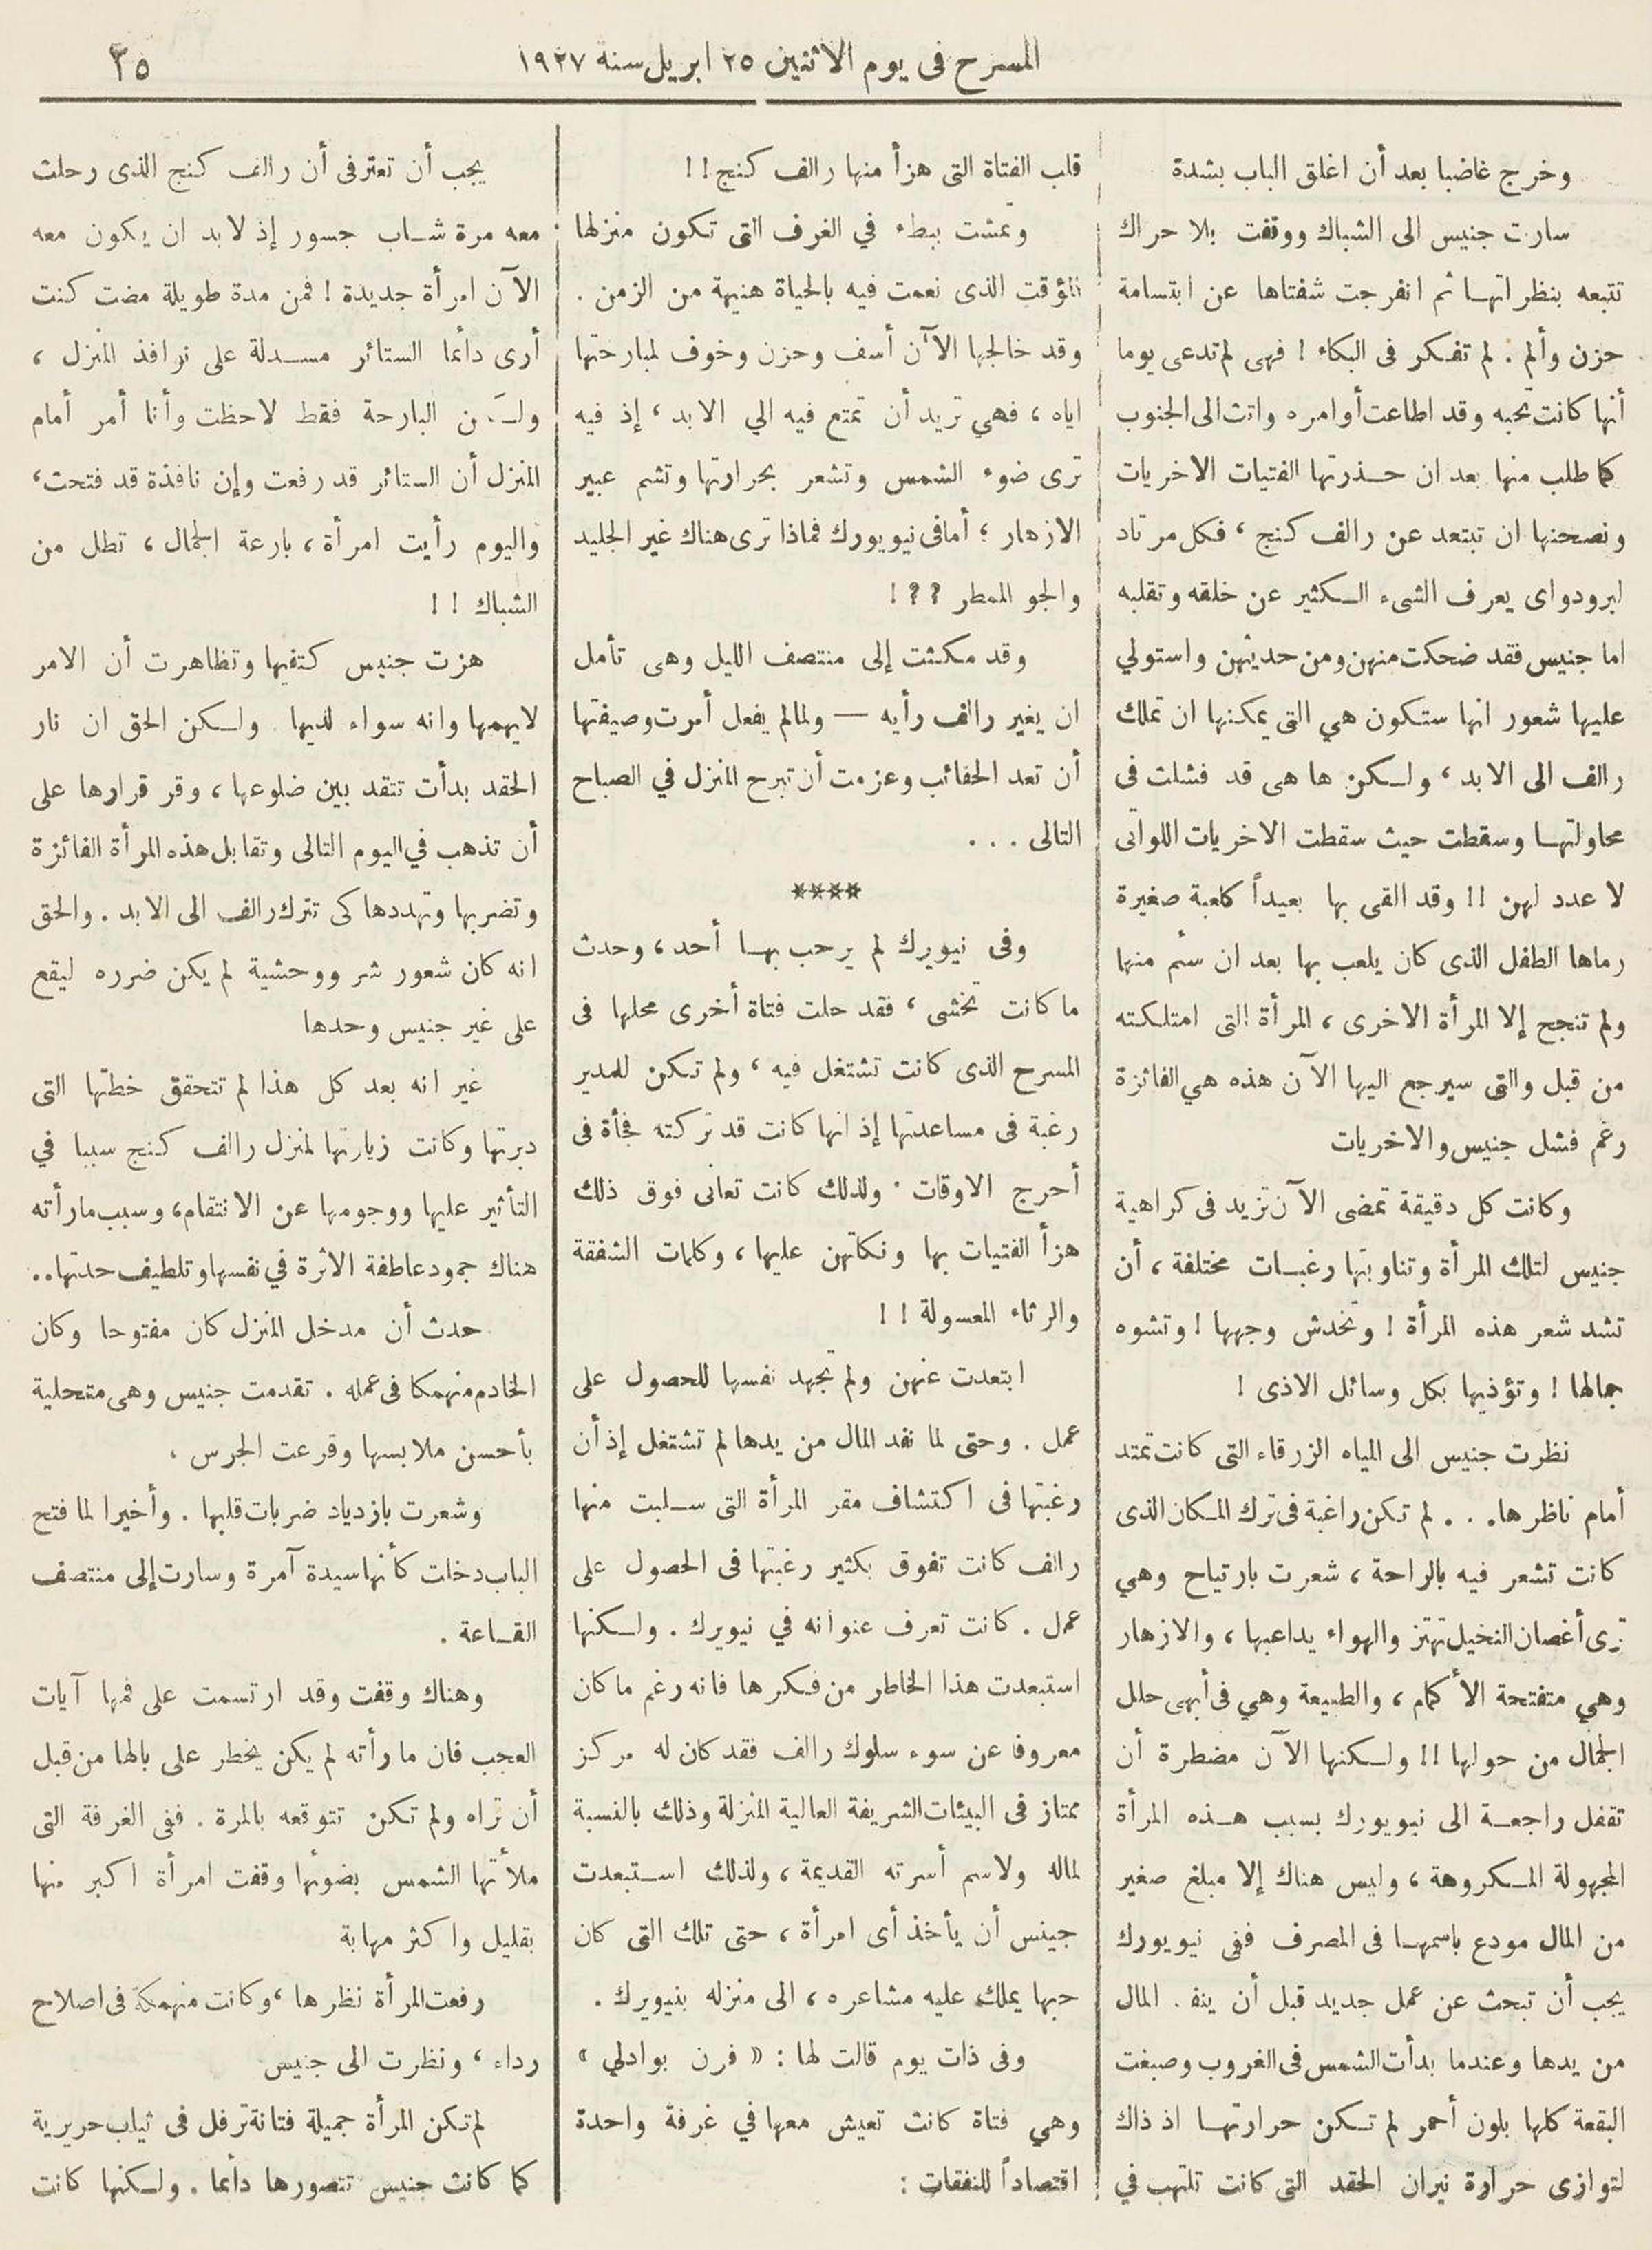 المسرح فى يوم الاثنين ٢٥ ابريل سنة ١٩٢٧
٣٥
وخرج غاضبا بعد أن اغلق الباب بشدة
سارت جنيس الى الشباك ووقفت بلا حراك
تتبعه بنظراتها ثم انفرجت شفتاها عن ابتسامة
حزن وألم . لم تفكر فى البكاء ! فهى لم تدعى يوما
أنها كانت تحبه وقد اطاعت أوامره واتت الى الجنوب
كما طلب منها بعد ان حذرتها الفتيات الاخريات
ونصحنها ان تبتعد عن رالف كنج ، فكل مرتاد
لبرودواى يعرف الشىء الكثير عن خلقه وتقلبه
اما جنيس فقد ضحكت منهن ومن حديثهن واستولي
عليها شعور انها ستكون هي التى يمكنها ان تملك
رالف الى الابد ، ولكن ها هى قد فشلت فى
محاولتها وسقطت حيث سقطت الاخريات اللواتى
لا عدد لهن !! وقد القى بها بعيداً كلعبة صغيرة
رماها الطفل الذى كان يلعب بها بعد ان سئم منها
ولم تنجح إلا المرأة الاخرى ، المرأة التى امتلكته
من قبل والتى سيرجع اليها الآن هذه هي الفائزة
رغم فشل جنيس والاخريات
وكانت كل دقيقة تمضى الآن تزيد فى كراهية
جنيس لتلك المرأة وتناوبتها رغبات مختلفة ، أن
تشد شعر هذه المرأة ! وتخدش وجهها ! وتشوه
جمالها ! وتؤذيها بكل وسائل الاذى !
نظرت جنيس الى المياه الزرقاء التى كانت تمتد
أمام ناظرها. . . لم تكن راغبة فى ترك المكان الذى
كانت تشعر فيه بالراحة ، شعرت بارتياح وهي
ترى أغصان النخيل تهتز والهواء يداعبها ، والازهار
وهي متفتحة الأكمام ، والطبيعة وهي فى أبهى حلل
الجمال من حولها !! ولكنها الآن مضطرة أن
تقفل راجعة الى نيويورك بسبب هذه المرأة
المجهولة المكروهة ، وليس هناك إلا مبلغ صغير
من المال مودع باسمها فى المصرف ففى نيويورك
يجب أن تبحث عن عمل جديد قبل أن ينفد المال
من يدها وعندما بدأت الشمس فى الغروب وصبغت
البقعة كلها بلون أحمر لم تكن حرارتها اذ ذاك
لتوازى حرارة نيران الحقد التى كانت تلتهب في
قلب الفتاة التى هزأ منها رالف كنج !!
وتمشت ببطء في الغرف التى تكون منزلها
المؤقت الذى نعمت فيه بالحياة هنيهة من الزمن .
وقد خالجها الآن أسف وحزن وخوف لمبارحتها
اياه ، فهي تريد أن تمتع فيه الي الابد ، إذ فيه
ترى ضوء الشمس وتشعر بحرارتها وتشم عبير
الازهار ؛ أما فى نيويورك فماذا ترى هناك غير الجليد
والجو الممطر ؟؟!
وقد مكثت إلى منتصف الليل وهى تأمل
ان يغير رالف رأيه — ولما لم يفعل أمرت وصيفتها
أن تعد الحقائب وعزمت أن تبرح المنزل في الصباح
التالى . . .
****
وفى نيويرك لم يرحب بها أحد ، وحدث
ما كانت تخشى ، فقد حلت فتاة أخرى محلها فى
المسرح الذى كانت تشتغل فيه ، ولم تكن للمدير
رغبة فى مساعدتها إذ انها كانت قد تركته فجأة فى
أحرج الاوقات . ولذلك كانت تعانى فوق ذلك
هزأ الفتيات بها ونكاتهن عليها ، وكلمات الشفقة
والرثاء المعسولة ! !
ابتعدت عنهن ولم تجهد نفسها للحصول على
عمل . وحتى لما نفد المال من يدها لم تشتغل إذ أن
رغبتها فى اكتشاف مقر المرأة التى سلبت منها
رالف كانت تفوق بكثير رغبتها فى الحصول على
عمل . كانت تعرف عنوانه في نيويرك . ولكنها
استبعدت هذا الخاطر من فكرها فانه رغم ما كان
معروفا عن سوء سلوك رالف فقد كان له مركز
ممتاز فى البيئات الشريفة العالية المنزلة وذلك بالنسبة
لماله ولاسم أسرته القديمة ، ولذلك استبعدت
جينس أن يأخذ أى امرأة ، حتى تلك التى كان
حبها يملك عليه مشاعره ، الى منزله بنيويرك .
وفى ذات يوم قالت لها : « فرن بوادلي »
وهي فتاة كانت تعيش معها في غرفة واحدة
اقتصاداً للنفقات :
يجب أن تعترفى أن رالف كنج الذى رحلت
معه مرة شاب جسور إذ لا بد ان يكون معه
الآن امرأة جديدة ! فمن مدة طويلة مضت كنت
أرى دائما الستائر مسدلة على نوافذ المنزل ،
ولكن البارحة فقط لاحظت وأنا أمر أمام
المنزل أن الستائر قد رفعت وإن نافذة قد فتحت ،
واليوم رأيت امرأة ، بارعة الجمال ، تطل من
الشباك ! !
هزت جنيس كتفيها وتظاهرت أن الامر
لايهمها وانه سواء لديها . ولكن الحق ان نار
الحقد بدأت تتقد بين ضلوعها ، وقر قرارها على
أن تذهب في اليوم التالى وتقابل هذه المرأة الفائزة
وتضربها وتهددها كى تترك رالف الى الابد . والحق
انه كان شعور شر ووحشية لم يكن ضرره ليقع
على غير جنيس وحدها
غير انه بعد كل هذا لم تتحقق خطتها التى
دبرتها وكانت زيارتها لمنزل رالف كنج سببا في
التأثير عليها ووجومها عن الانتقام ، وسبب ما رأته
هناك جمود عاطفة الاثرة في نفسها وتلطيف حدتها . .
حدث أن مدخل المنزل كان مفتوحا وكان
الخادم منهمكا فى عمله . تقدمت جنيس وهى متحلية
بأحسن ملابسها وقرعت الجرس ،
وشعرت بازدياد ضربات قلبها . وأخيرا لما فتح
الباب دخلت كأنها سيدة آمرة وسارت إلى منتصف
القاعة .
وهناك وقفت وقد ارتسمت على فمها آيات
العجب فان ما رأته لم يكن يخطر على بالها من قبل
أن تراه ولم تكن تتوقعه بالمرة . ففى الغرفة التى
ملأتها الشمس بضوئها وقفت امرأة اكبر منها
بقليل واكثر مهابة
رفعت المرأة نظرها ، وكانت منهمكة فى اصلاح
رداء ، ونظرت الى جنيس
لم تكن المرأة جميلة فتانة ترفل فى ثياب حريرية
كما كانت جنيس تتصورها دائما . ولكنها كانت